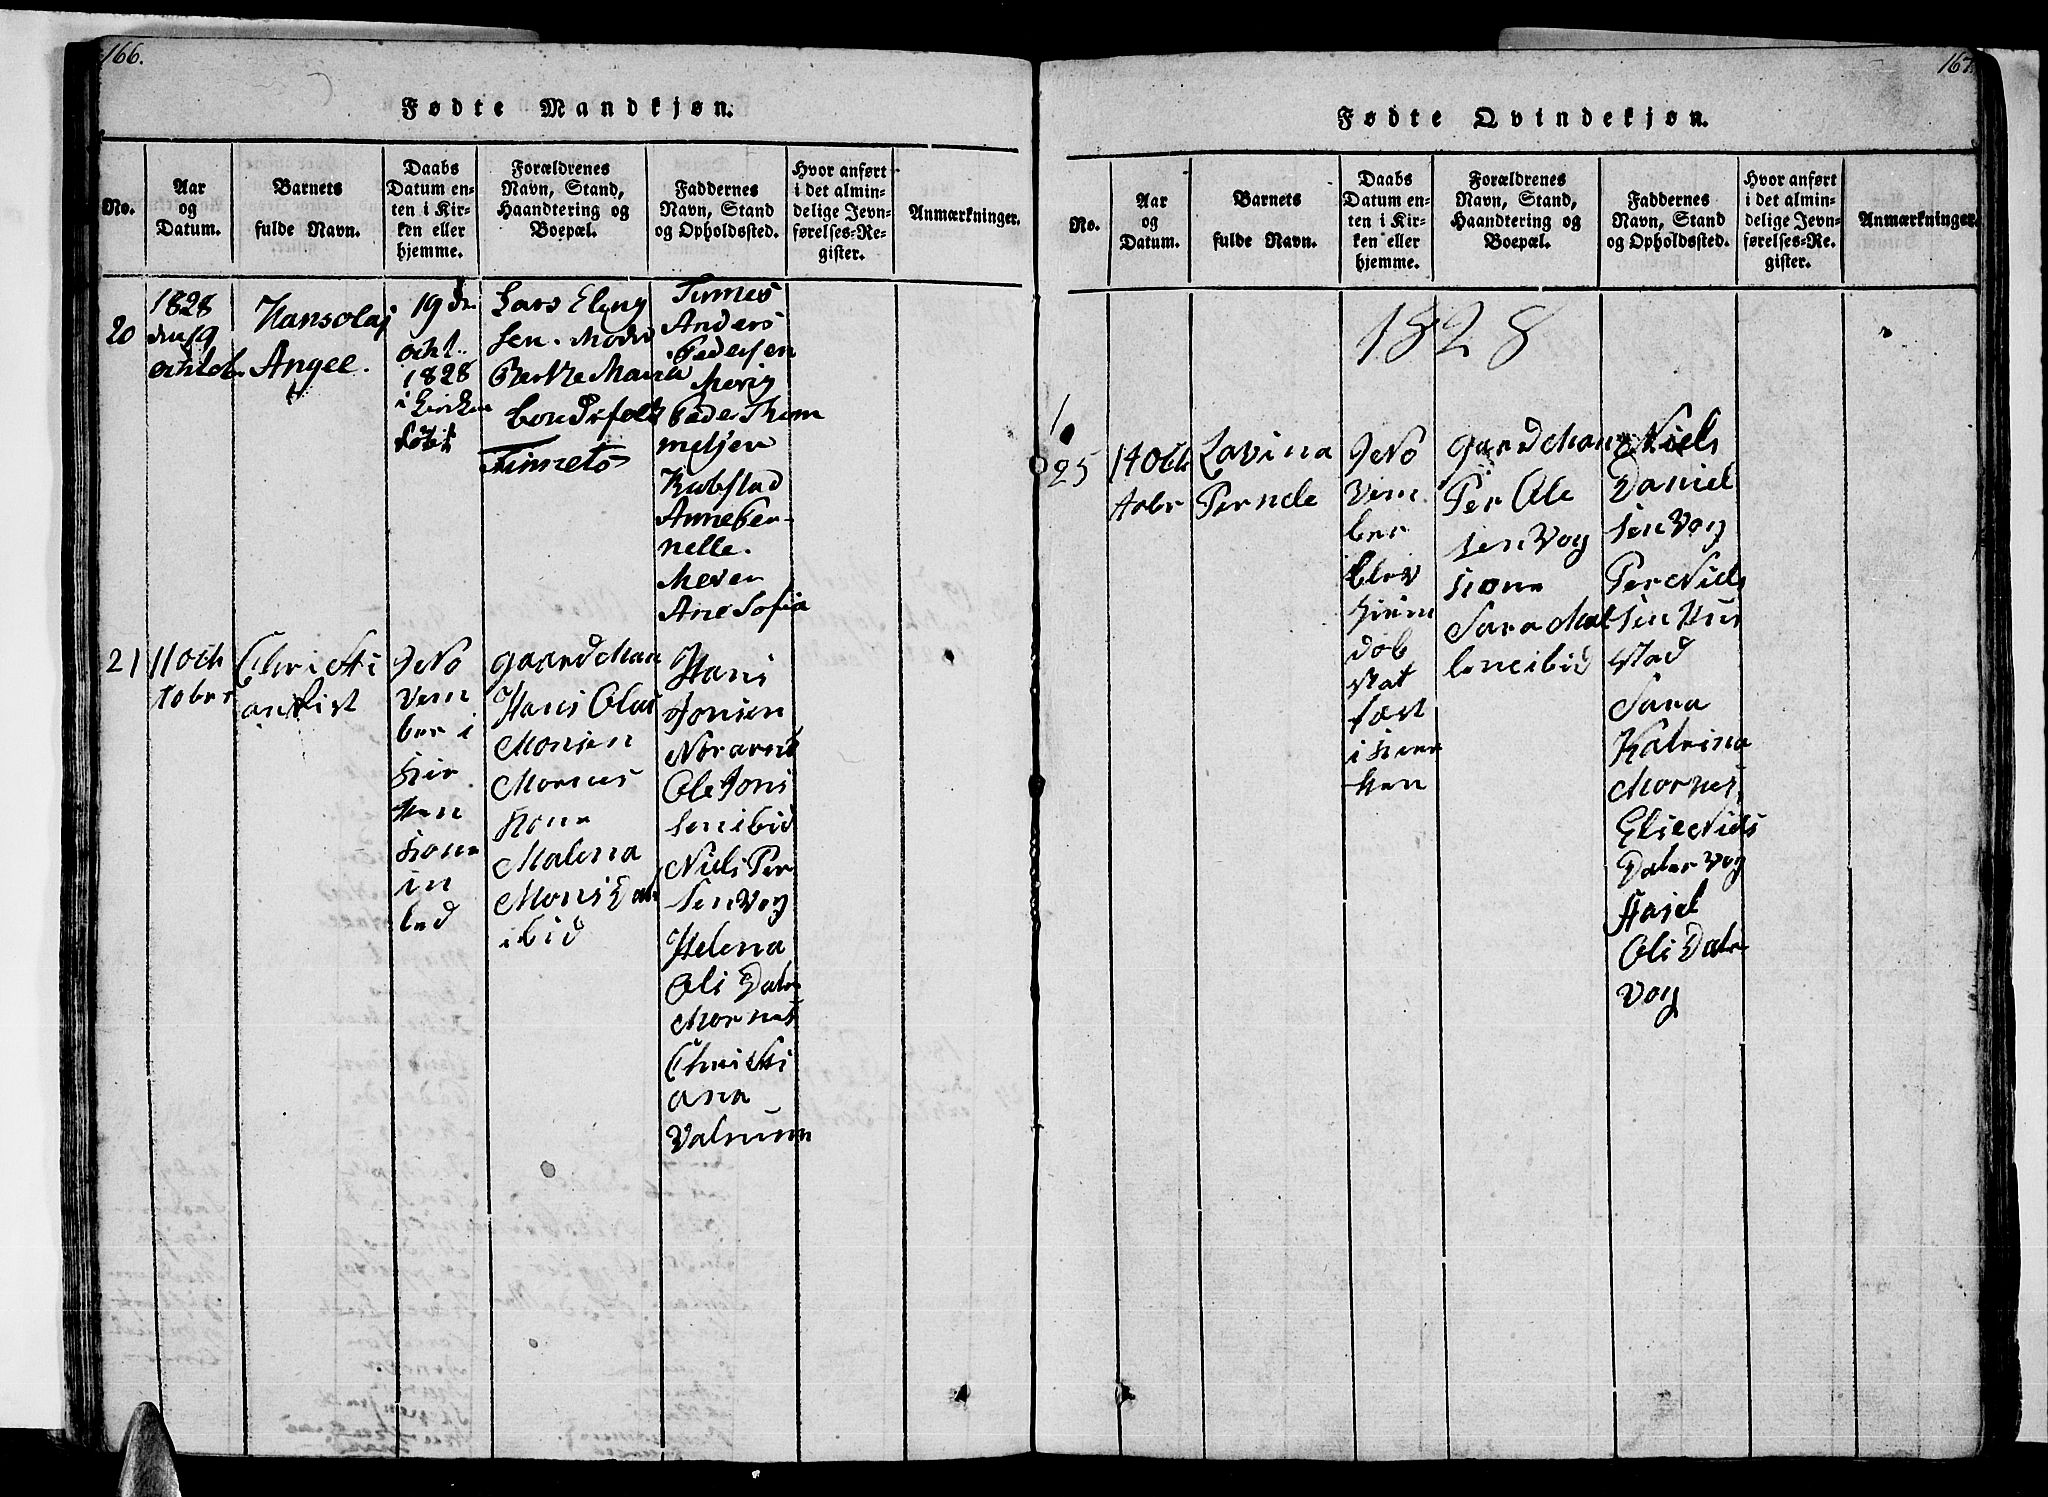 166.
Fødte Mandkjøn.
No.
Aar
og
Datum.
Barnets
fulde Navn.
Daabs
Datum en-
ten i Kir-
ken eller
hjemme.
Forældrenes
Navn, Stand,
Haandtering og
Boepæl.
Faddernes
Navn, Stand
og Opholdssted.
Hvor anført
i det almin-
delige Jevn-
førelses-Re-
gister.
Anmærkninger.
20
1828
den 19
Hansolaj
Angel.
19 de
ocht..
1828
i kirken
döbt
Lars Eling
sen. Moder
Berthe Maria
bondefolk
Finnets
Finnes
Anders
Pedersen
Merig
Peder Thom
metjen
Kobstad
Anneper-
nelle.
Meven
Ane Sofia
21
11 Och
tober
Christi
an List
9 No
vem
ber i
kir
ken
kone
in
led
gaardMan
Hans Olai
Monsen
Mornes
kone
Malena
Mons Dat
ibid
Hans
Jonsen
Norarnø
Ole Jons
sen ibid
Niels Per
sen Vog
Helena
Oli Dater
Mornes
Christi
ana
Valnumm
167.
Fødte Qvindekjøn.
No.
Aar
og
Datum.
Barnets
fulde Navn.
Daabs
Datum en-
ten i Kir-
ken eller
hjemme.
Forældrenes
Navn, Stand,
Haandtering og
Boepæl.
Faddernes
Navn, Stand
og Opholdssted.
Hvor anført
i det almin-
delige Jevn-
førelses-Re-
gister.
Anmærkninger.
1828
25
14 Och
tobr
Lavina
Pernele
9 No
vem
ber
blev
hiem
døb
stat
fæst
i kirr
ken
gaardMan
Per Ole
sen Vog
kone
Sara Mal
lene ibid
Niels
Daniel
sen Vog
Per Niels
sen Hus
stad
Sara
Katrina
Mornes
Else Niels
Dater Vog
Hasel
Oli Dater
Vog